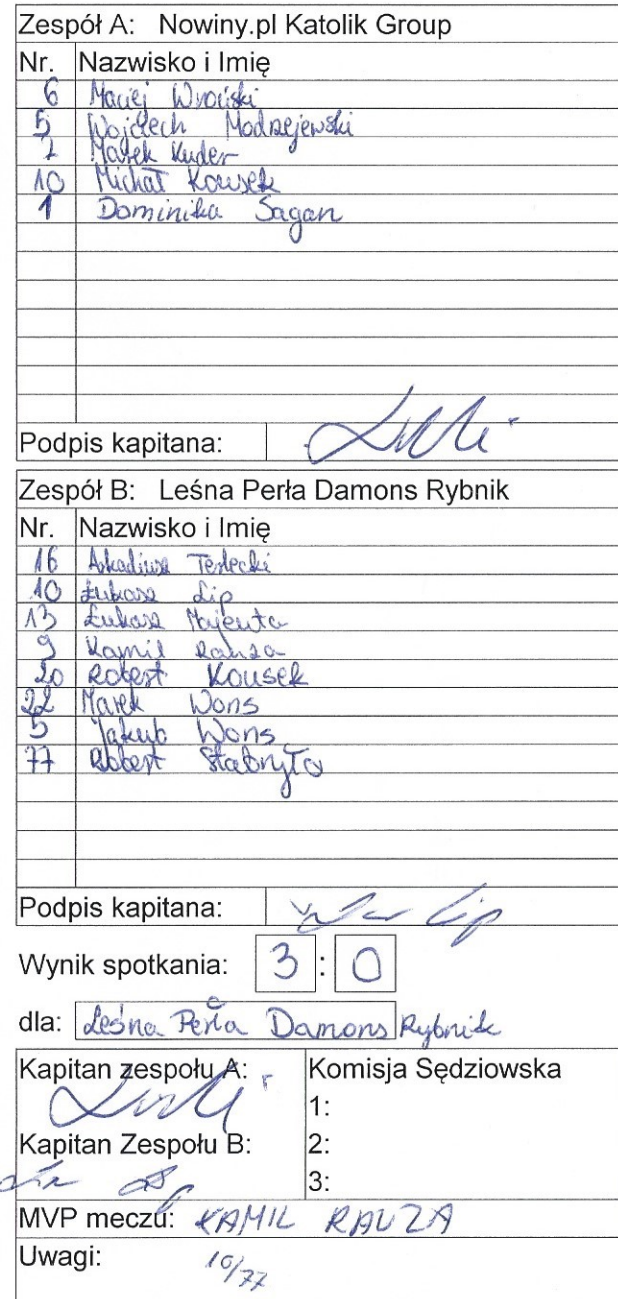 Zespół A: Nowiny.pl Katolik Group
Nr. Nazwisko i Imię
6 Maciej Wroński
5 Wojciech Modrzejewski
2 Marek Kuder
10 Michał Kousek
1 Dominika Sagan
Podpis kapitana:
Zespół B: Leśna Perła Damons Rybnik
Nr. Nazwisko i Imię
16 Arkadiusz Terlecki
10 Łukasz Lip
13 Łukasz Majenta
9 Kamil Rauza
20 Robert Kousek
22 Marek Wons
5 Jakub Wons
77 Robert Stabryła
Podpis kapitana: Lip
Wynik spotkania: 3 : 0
dla: Leśna Perła Damons Rybnik
Kapitan zespołu A: Komisja Sędziowska
1:
Kapitan Zespołu B: 2:
3:
MVP meczu: KAMIL RAUZA
Uwagi: 10/77